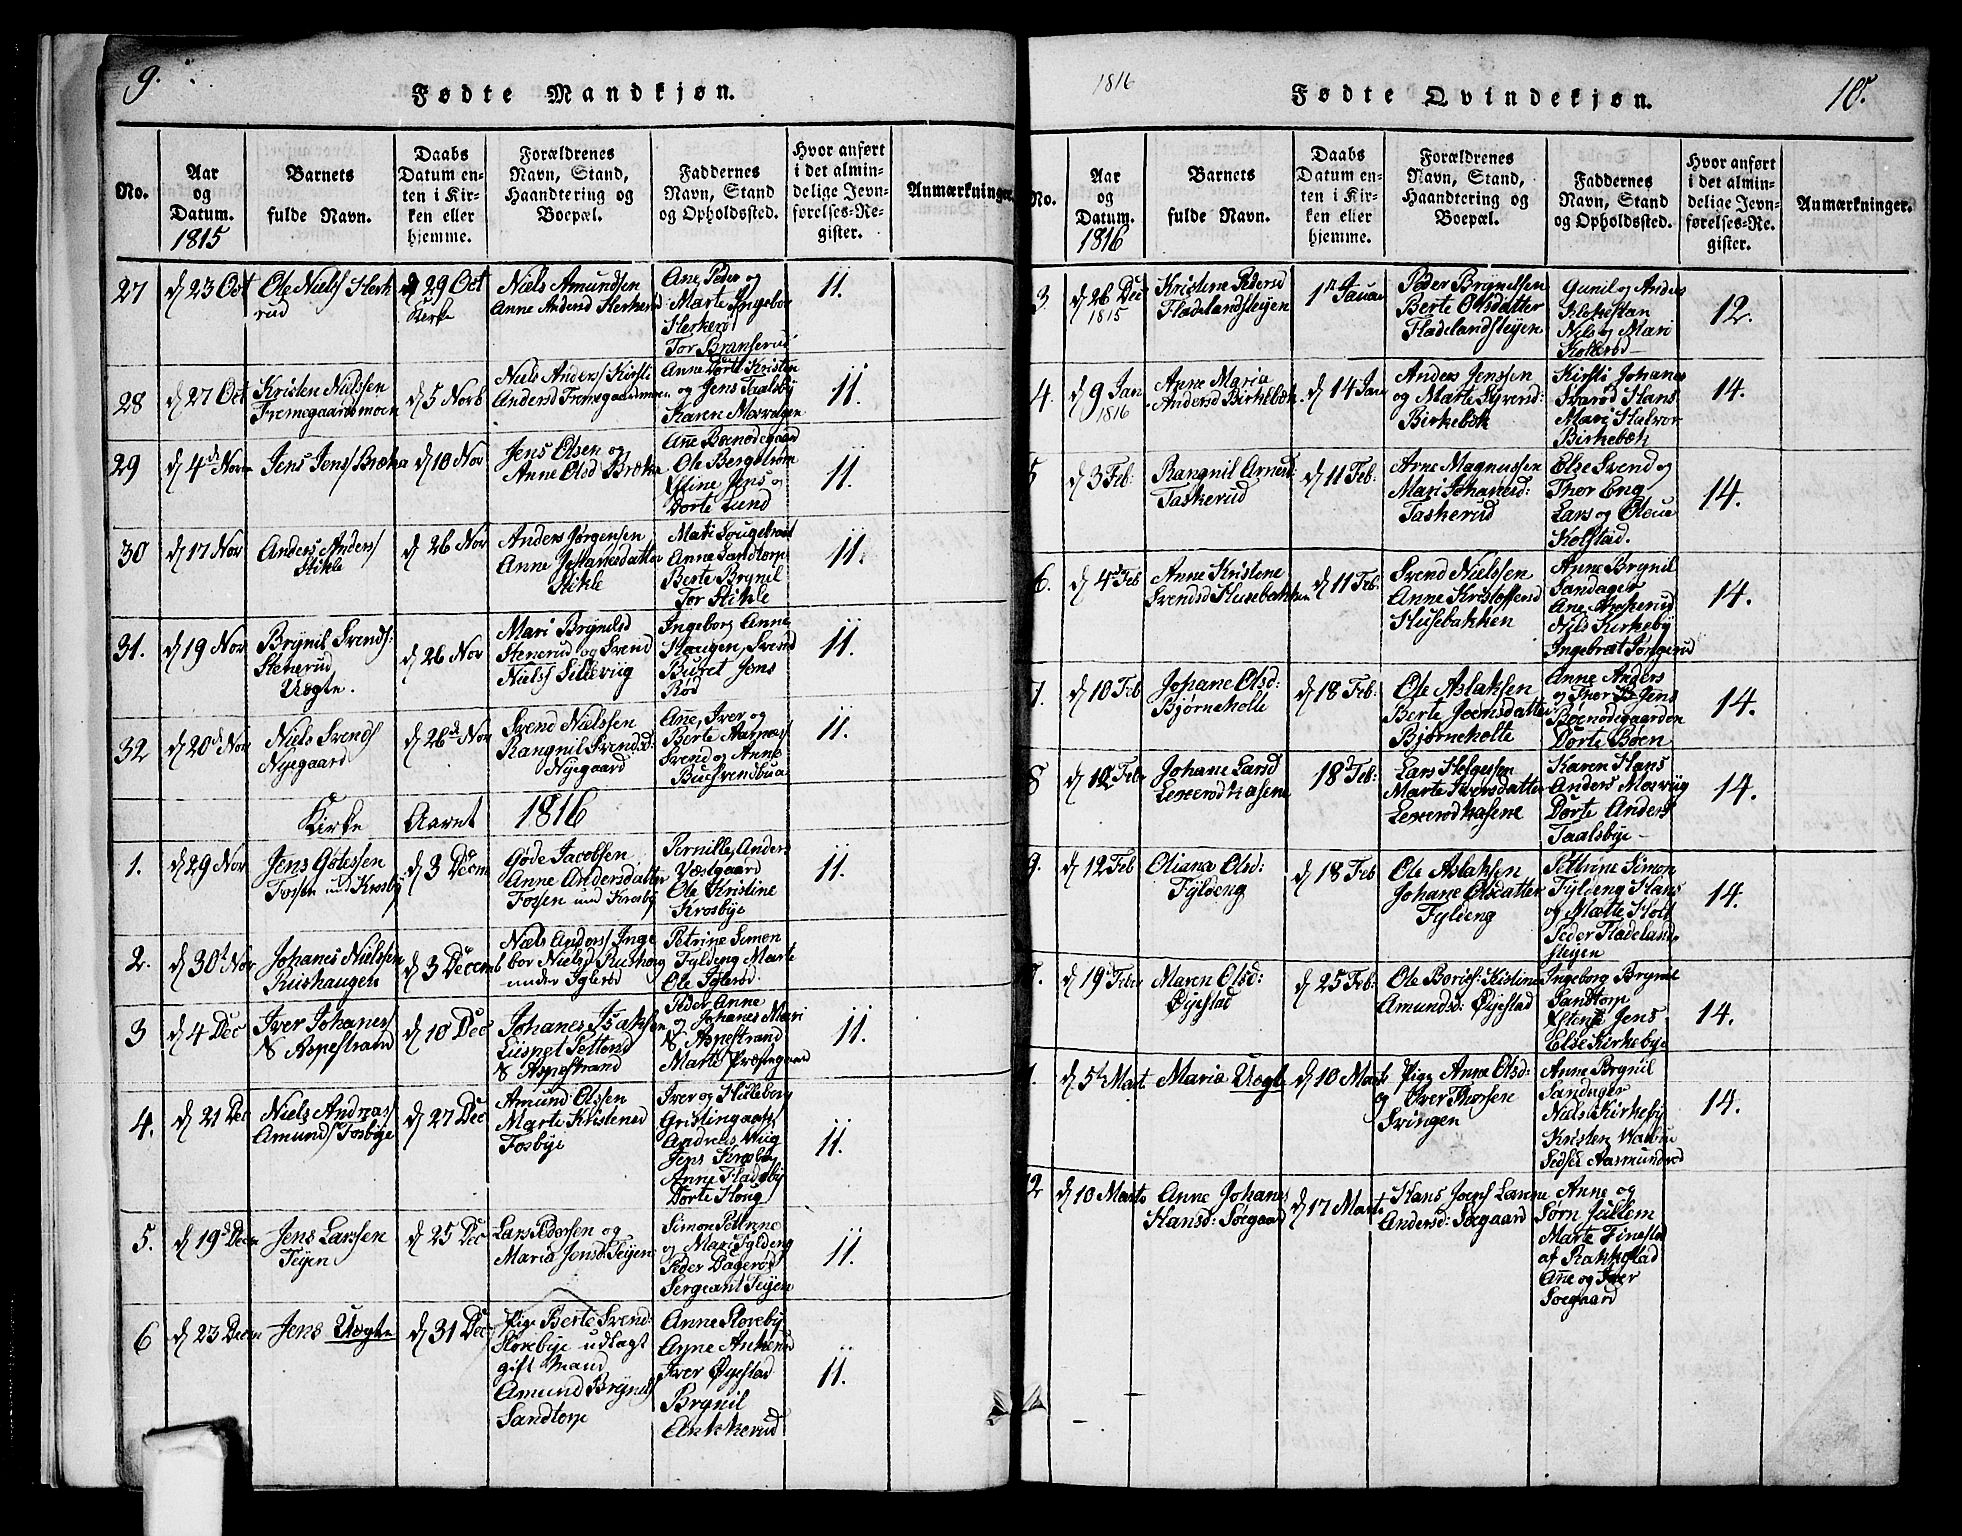 9.
Fødte Mandkjøn.
No.
Aar
og
Datum.
1815
Barnets
fulde Navn.
Daabs
Datum en-
ten i Kir-
ken eller
hjemme.
Forældrenes
Navn, Stand,
Haandtering og
Boepæl.
Faddernes
Navn, Stand
og Opholdssted.
Hvor anført
i det almin-
delige Jevn-
førelses-Re-
gister.
Anmærkninger.
27
d 23 Oct
Ole Niels/ Herk
rud
d 29 Oct
Kirke
Niels Amundsen
Anne Andersd Herkerud
Ane, Peder og
Marte Ingebor
Herkerø
Tor Brunserud
11.
28
d 27 Oct
Kristen Nielssen
Fremegaardsmoen
d 5 Norb
Niels Anders/ Kirsti
Andersd Fremegaardsmoen
Anne Dorte Kristen
og Jens Taalsby
Karen
11.
29
d 4d Nov
Jens Jens/ Bræka
d 10 Nov
Jens Olsen og
Anne Olsd Bræka
Ane Boenødegaard
Ole Bergstrøm
Eline Jens og
Dorte Lund
11.
30
d 17 Nov
Anders Anders/
Stikle
d 26 Nov
Anders Jørgensen
Anne Johanesdatter
Stikle
Mari
Anne Sandtorp
Berte Brynil
Tor Stikle
11.
31.
d 19 Nov
Brynil Svends:
Stenerud
Uægte.
d 26 Nov
Mari Brynilsd
Stenerud og Svend
Niels/ Sillevug
Ingebor, Anne
Haugen, Svend
Buret Jens
Rød
11.
32
d 20d Nov
Niels Svends/
Nyegaard
d 26d Nov
Svend Nielssen
Rangnil Svendsd:
Nyegaard
Ane, Iver og
Berte Aarnæs/
Svend og Anne
Buesvendbua
11.
Kirke Aaret 1816
1.
d 29 Nov
Jens Gødessen
Torsen und Krosby
d 3 Decem
Gøde Jacobsen
Anne Andersdatter
Tossen und Krosby
Pernille, Anders
Væstgaard
Ole Kristine
Krosbye
11.
2.
d 30t Nov
Johanes Nielssen
Ruishaugen
d 3 Decemb
Niels Anders/ Inge
bor Nielsd Ruishog
under Iglerød
Petrine Simon
Fyldeng Marte
Ole Iglerød
3
d 4 Dec
Iver Johanes/
N Aspestrand
d 10 Dec
Johanes Isaksen
Lispet Pettersd
N Aspestrand
Peder Anne
og Johanes Mari
N Aspestrand
Marte Præstegaard
11.
4.
d 21 Dec
Niels Andreas/
Amunds/ Fosbye
d 27 Dec
Amund Olssen
Marte Kristensd
Fosbye
Iver og Hilleborg
Gristingaard
Andreas Wiig
Jens Krosby
Anne Fladeby
Dorte Houg
11.
5.
d 19d Decm
Jens Larssen
Teyen
d 25 Dec
Lars Pedersen og
Maria Jensd: Teyen
Simon Petrine
og Mari Fyldeng
Peder Dagerød
Sergeant Teyen
11.
6
d 23 Decm
Jens Uægte
d 31 Dec
Pige Berte Svend
Storebye udlagt
gift Mand
Amund Brynils/
Sandtorp
Anne Storeby
Anne Ankerud
Iver Øyestad
Brynil
Ankkerud
11.
1816
Fødte Qvindekjøn.
10.
No.
Aar
og
Datum.
1816
Barnets
fulde Navn.
Daabs
Datum en-
ten i Kir-
ken eller
hjemme.
Forældrenes
Navn, Stand,
Haandtering og
Boepæl.
Faddernes
Navn, Stand
og Opholdssted.
Hvor anført
i det almin-
delige Jevn-
førelses-Re-
gister.
Anmærkninger.
3.
d 26 Dec
1815
Kristine Pedersd
Fladelandsteyen
1t Januar
Peder Brynildsen
Berte Olsdatter
Fladelandsteyen
Gunil og Anders
Klokestan
Niels og Mari
Kollerød
12.
4.
d 9 Jan
1816
Anne Maria
Andersd Birkebæk
d 14 Jan
Anders Jenssen
og Marte Syversd:
Birkebæk
Kirsti Johanes
Svarød Hans
Mari Halvor
Birkebæk
14.
5
d 3 Feb:
Rangnil Arnesd:
Taskerud
d 11 Feb:
Arne Magnussen
Mari Johanesd:
Taskerud
Else Svend og
Thor Eng
Lars og Oleua
Kolstad.
14.
6.
d 4d Feb
Anne Kristine
Svendsd Husebakken
d 11 Feb:
Svend Nielssen
Anne Kristoffersd
Husebakken
Anne Brynil
Sandager
Ane Ankerud
Niels Kirkeby
Ingebret
14.
7.
d 10 Feb
Johane Olsd:
Bjørneholte
d 18 Feb:
Ole Aslaksen
Berte Joensdatter
Bjørneholte
Anne Anders
og Thor Jens
Boenødegaarden
Dorte Boen
14.
8
d 12 Feb
Johane Larsd
Lexerødkasene
18d Feb:
Lars Helgessen
Marte Iversdatter
Lexerødkasene
Karen Hans
Anders
Dorte Anders
Taalsbye
14.
9.
d 12 Feb
Oliana Olsd:
Fyldeng
d 18 Feb
Ole Aslaksen
Johane Olsdatter
Fyldeng
Pettrine Simon
Fyldeng Hans
og Mætte Holt
Peder Fladeland-
steyen
14.
d 19d Feb
Maren Olsd:
Øyestad
d 25 Feb:
Ole Bories: Kristine
Amundsd: Øyestad
Ingeborg Brynil
Sandtorp
Jens
Else Kirkebye
14.
d 5t Mart
Maria Uægt
d 10 Mart
Pige Anne Olsd:
og Iver Thorsen
Svingen
Anne Brynil
Sandager
Niels Kirkeby
Kristen
Aasmundrød
14.
12
d 10 Marts
Anne Johane
Hansd: Soegaard
d 17 Marts
Hans Joens/ Larene
Andersd: Soegaard
Anne og
Sørn Jullem
Marte Finestad
af Rakkestad
Ane og Iver
Soegaard